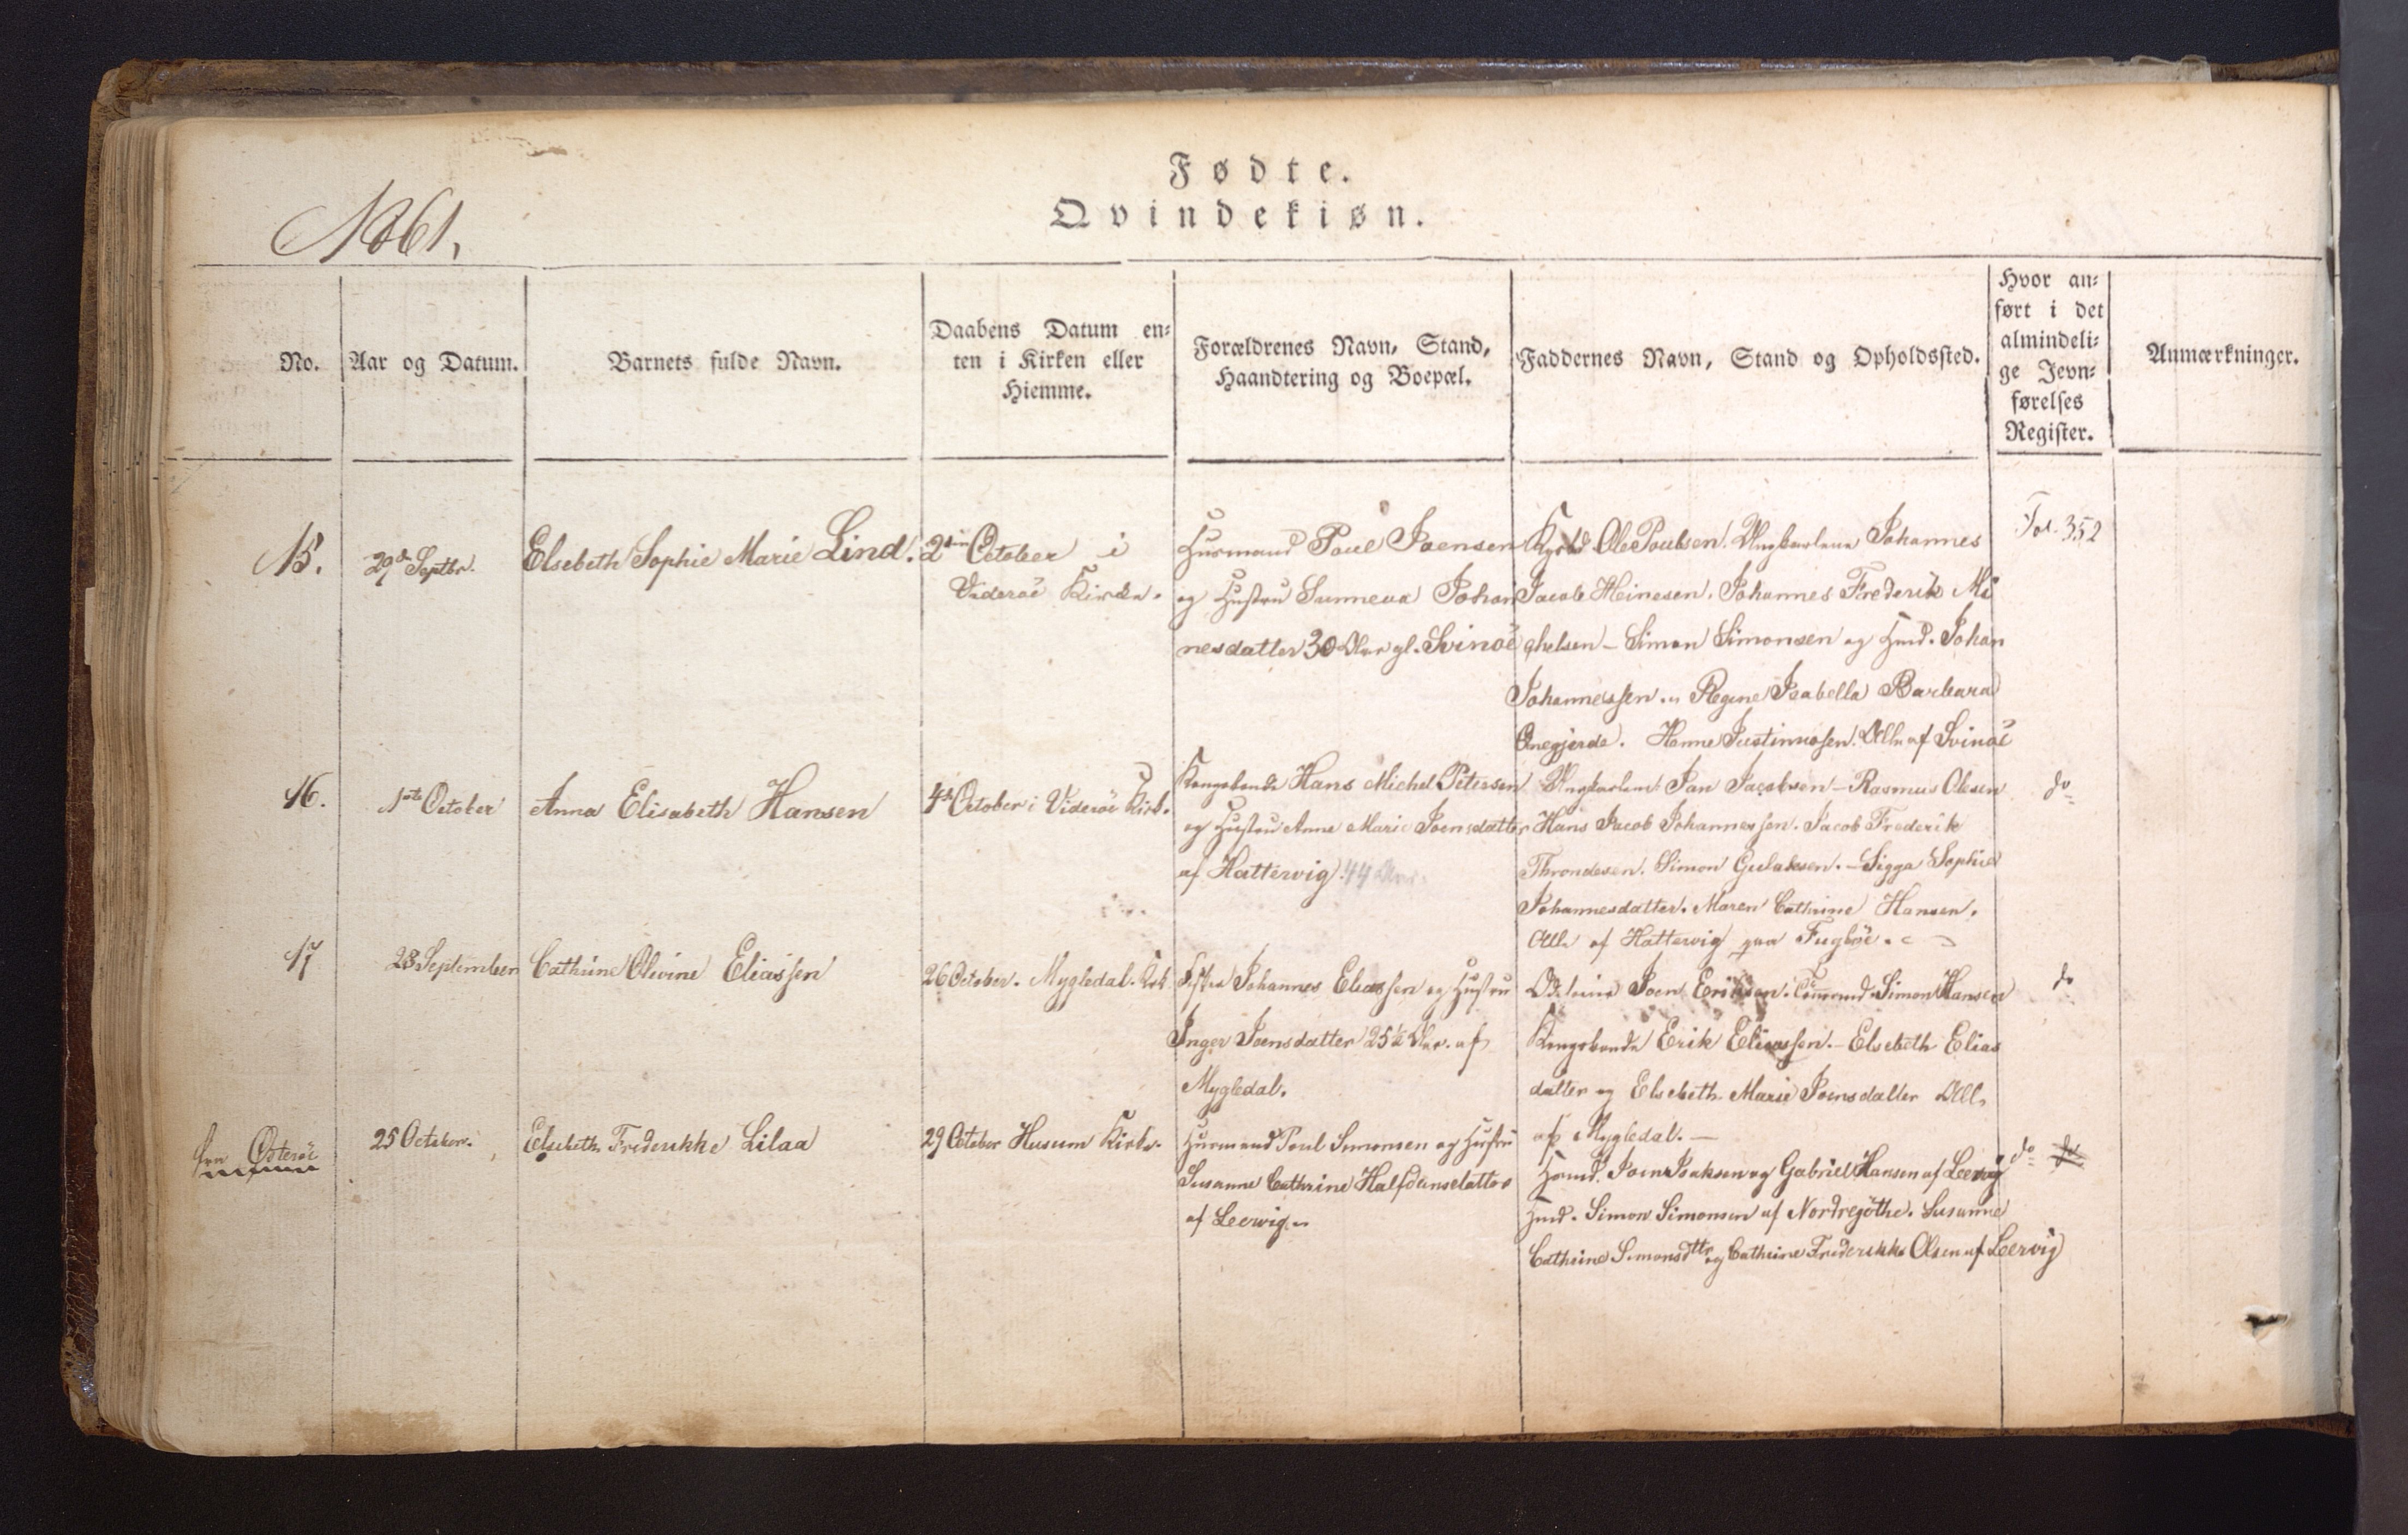 Fødte.
Qvindekiøn.
1861.
No.
Aar og Datum.
Barnets fulde Navn.
Daabens Datum en-
ten i Kirken eller
Hiemme.
Forældrenes Navn, Stand,
Haandtering og Boepæl.
Faddernes Navn, Stand og Opholdssted.
Hvor an-
ført i det
almindeli-
ge Jevn-
førelses
Register.
Anmærkninger.
15.
29de Septbr.
Elsebeth Sophie Marie Lind.
2den October i
Viderøe Kirke.
Huusmand Poul Joensen
og Hustru Sunneva Johan
nesdatter 30 Aar gl. Svinøe
Ole Poulsen. Ungkarlene Johannes
Jacob Heinesen. Johannes Frederik Mi
chelsen – Simon Simonsen og Hmd. Johan
Johannessen. Regine Isabella Barbara
Hanne Justinussen. Alle af Svinøe
Fol. 352
16.
1ste October
Anna Elisabeth Hansen
4de October i Viderøe Kirke.
Kongsbonde Hans Michel Petersen
og Hustru Anne Marie Joensdatter
af Hattervig. 44 Aar.
Ungkarlene Jan Jacobsen – Rasmus Olesen
Hans Jacob Johannessen. Jacob Frederik
Throndesen. Simon Gulaksen. – Sigga Sophie
Johannesdatter. Maren Cathrine Hansen.
Alle af Hattervig paa Fugløe.
do
17
28 September
Cathrine Olevine Eliassen
26 October. Mygledal. Kirk
Johannes Eliassen og Hustru
Inger Joensdatter 25½ Aar. af
Mygledal.
Joen Eriksen. Simon Hansen
Kongsbonde Erik Eliassen. – Elsebeth Elias
datter og Elsebeth Marie Joensdatter Alle
af Mygledal. —
do
fra Østerøe
25 October.
Elsebeth Frederikke Lilaa
29 October Husum Kirke.
Huusmand Poul Simonsen og Hustru
Susanne Cathrine Halfdansdatter
af Leervig.
Huusmd. Joen Isaksen og Gabriel Hansen af Leervig
Hmd. Simon Simonsen af Nordregöthe. Susanne
Cathrine Simonsdttr og Cathrine Frederikke Olsen af Leervig
do do